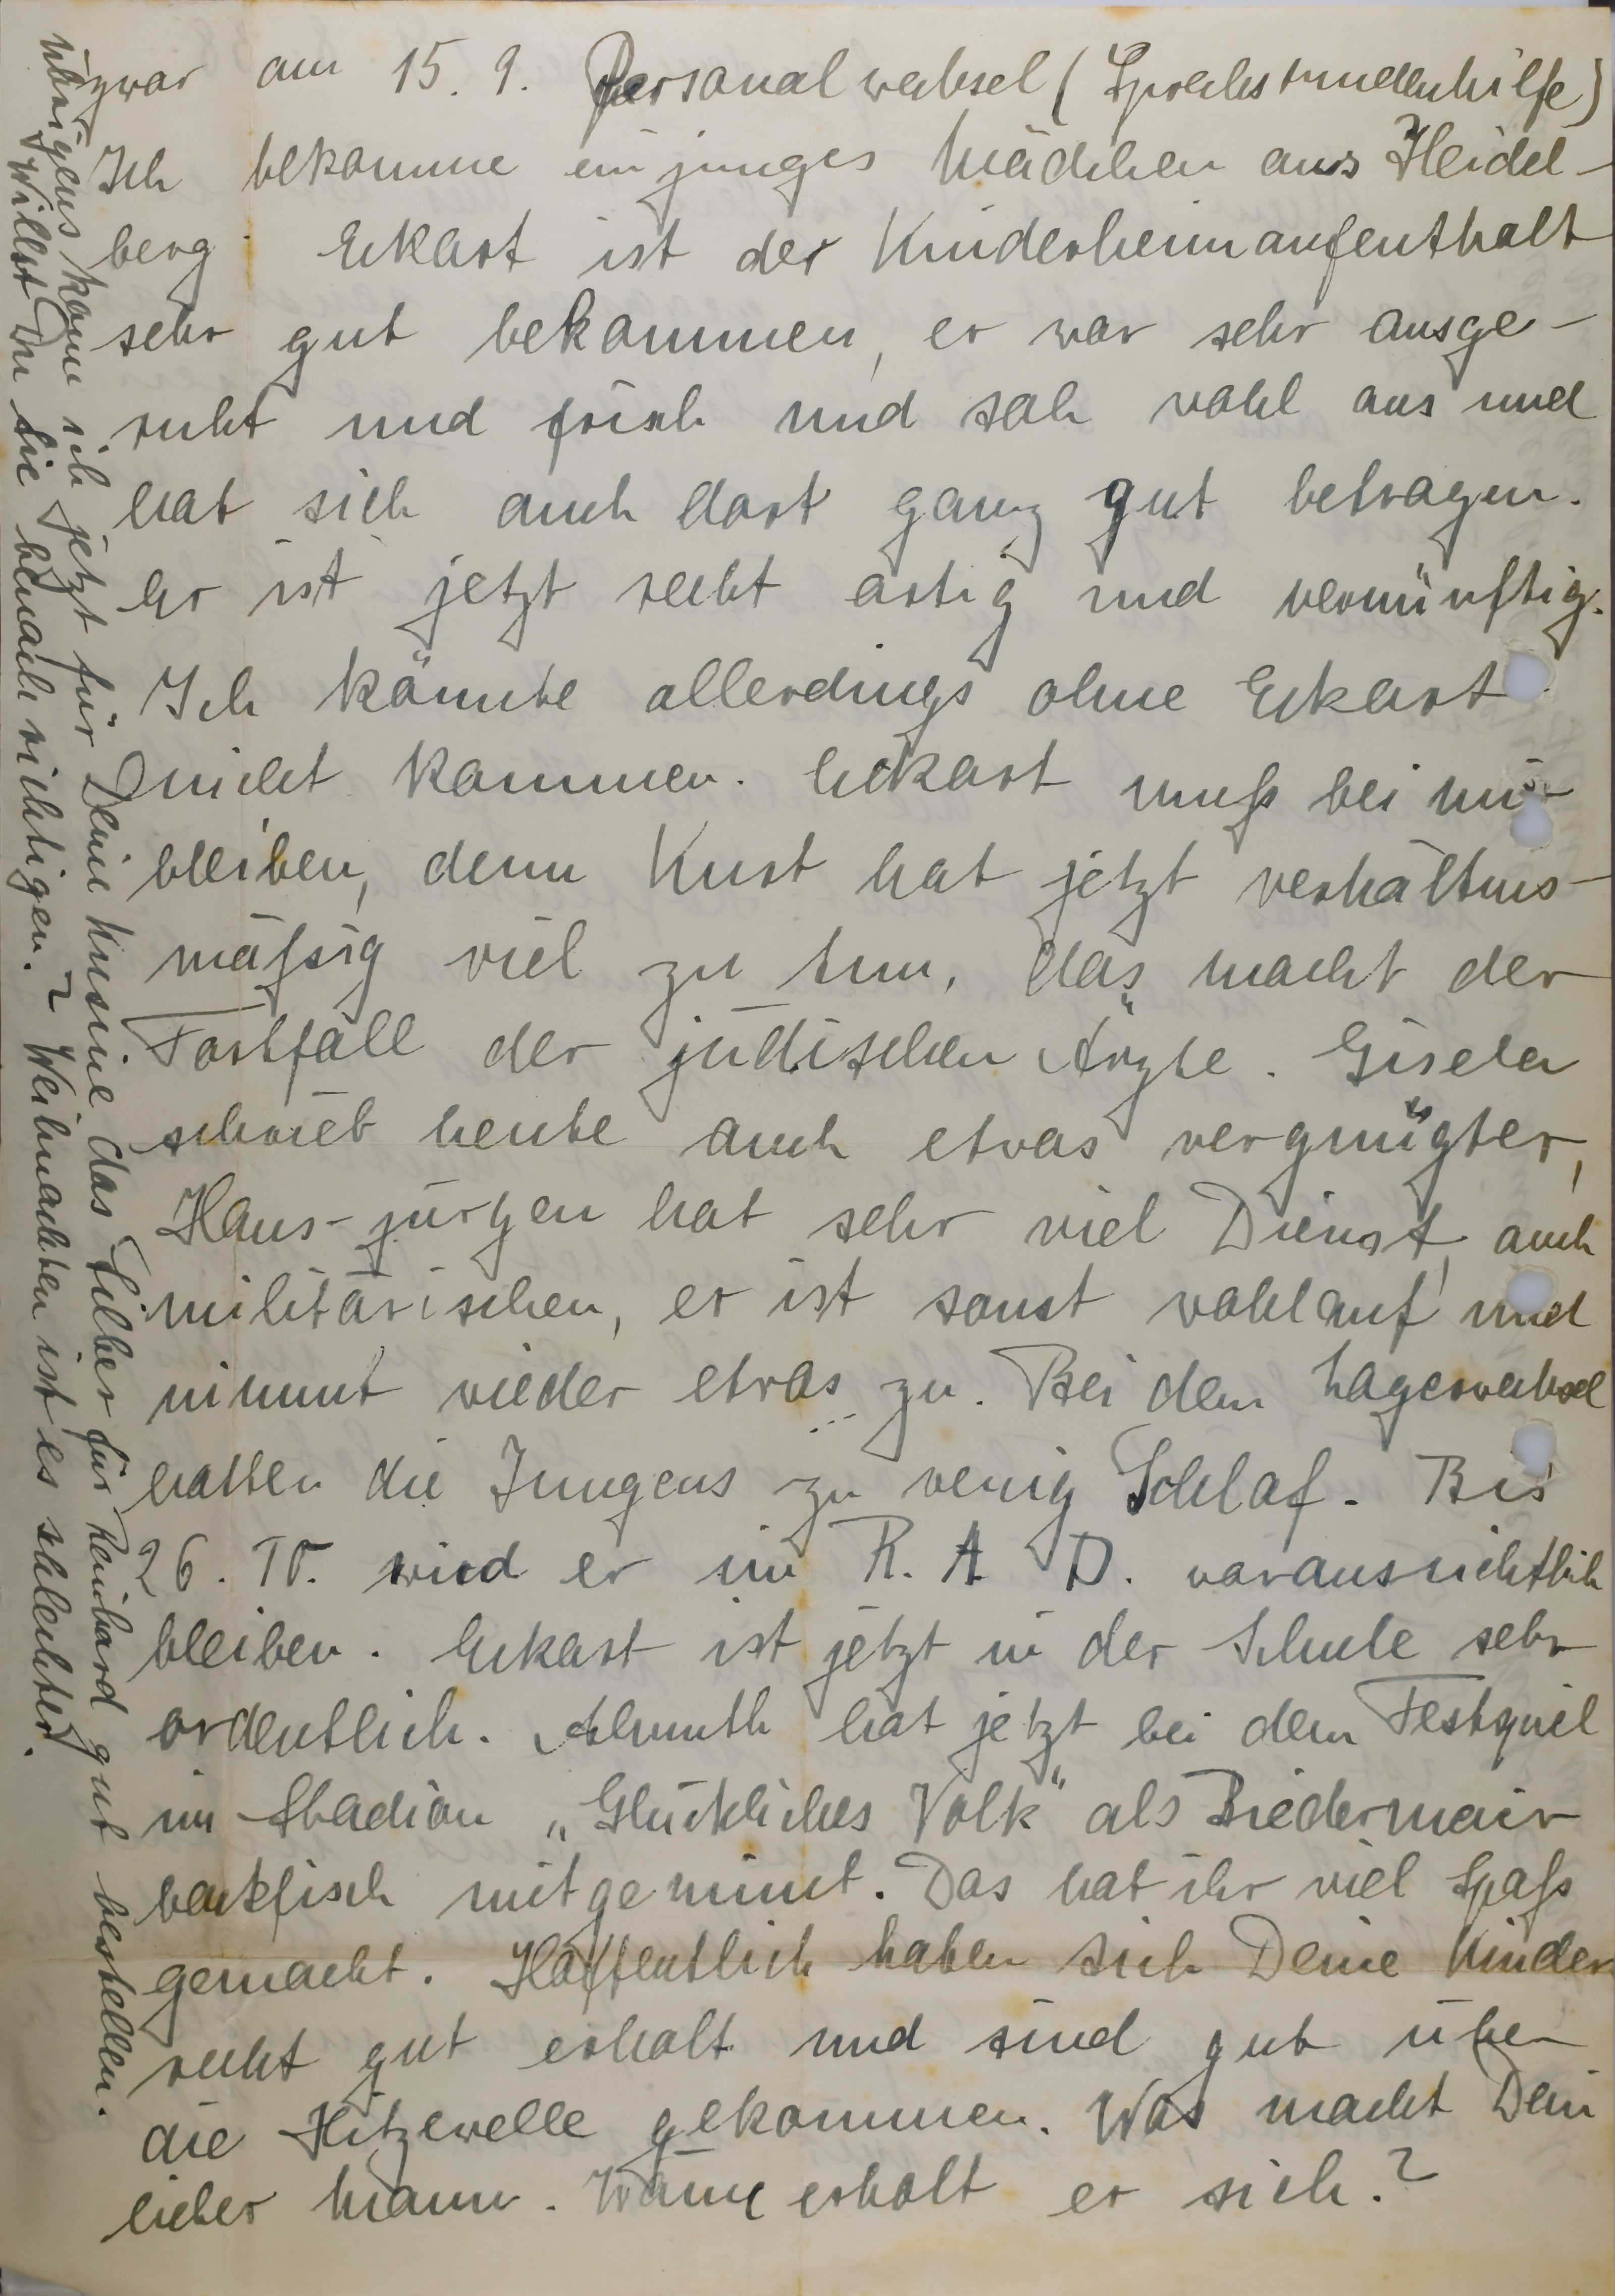 zwar am 15. 9. Personalwechsel (Sprechstundenhilfe)
Ich bekomme ein junges Mädchen aus Heidel-
berg. Eckart ist der Kinderheimaufenthalt
sehr gut bekommen, er war sehr ausge-
ruht und frisch und sah wohl aus und
hat sich auch dort ganz gut betragen.
Er ist jetzt recht artig und vernünftig.
Ich könnte allerdings ohne Eckart
nicht kommen. Eckart muß bei mir
bleiben, denn Kurt hat jetzt verhältnis-
mäßig viel zu tun, das macht der
Fortfall der jüdischen Ärzte. Gisela
schrieb heute auch etwas vergnügter,
Hans-Jürgen hat sehr viel Dienst, auch
militärischen, er ist sonst wohlauf und
nimmt wieder etwas zu. Bei dem Lagerwechsel
hatten die Jungens zu wenig Schlaf. Bis
26. wird er im R. A. D. voraussichtlich
bleiben. Eckart ist jetzt in der Schule sehr
ordentlich. Almuth hat jetzt bei dem Festspiel
im Stadion „Glückliches Volk" als Biedermair
backfisch mitgemimt. Das hat ihr viel Spaß
gemacht. Hoffentlich haben sich Deine Kinder
recht gut erholt und sind gut über
die Hitzewelle gekommen. Was macht Dein
lieber Mann. Wann erholt er sich?
Übrigens kann ich jetzt für Deine Kusine das Silber für Reinhard gut bestellen.
Willst Du sie benachrichtigen? Weihnachten ist es schlechter.